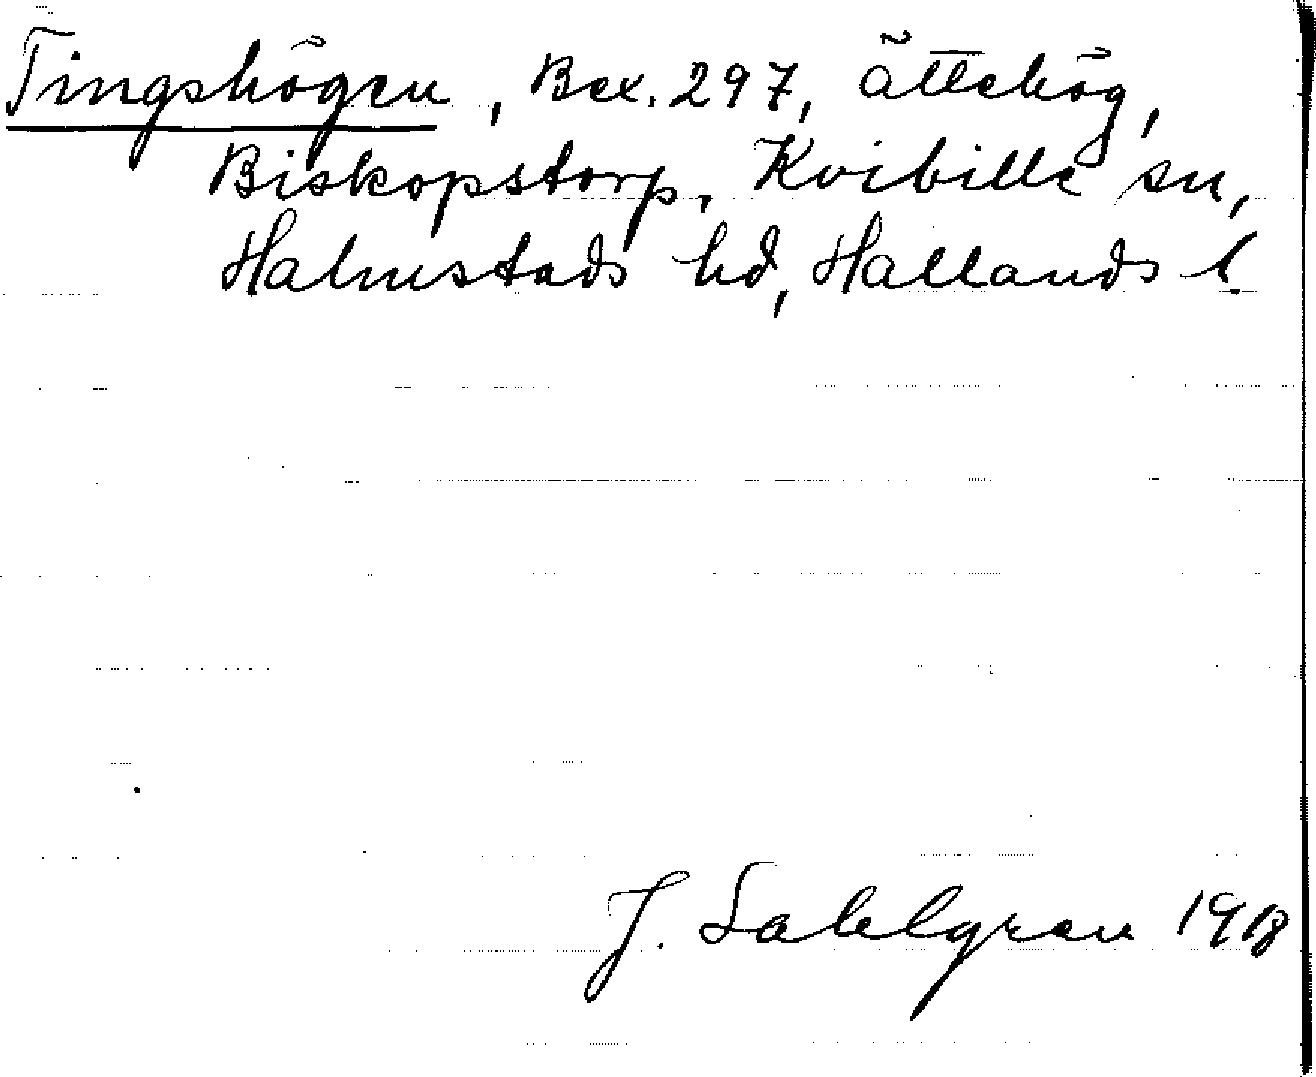 Tingshögen, Bex. 297, ättehög,
Biskopstorp, Kvibille sn,
Halmstads hd, Hallands l.
J. Sahlgren 1918